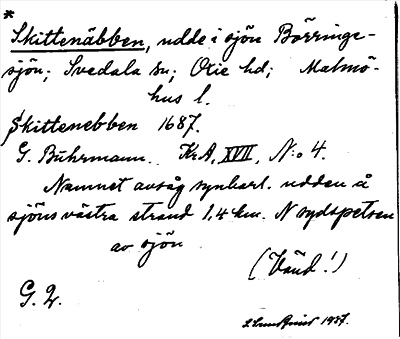 *
Skittenäbben, udde i sjön Börringe-
sjön; Svedala sn; Oxie hd; Malmö-
hus l.
Skittenebben 1687.
G. Buhrmann. Kr.A, XVII, N:o 4.
Namnet avsåg synbarl. udden å
sjöns västra strand 1,4 km. N sydspetsen
av sjön
(Vänd!)
G. 2.
1937.